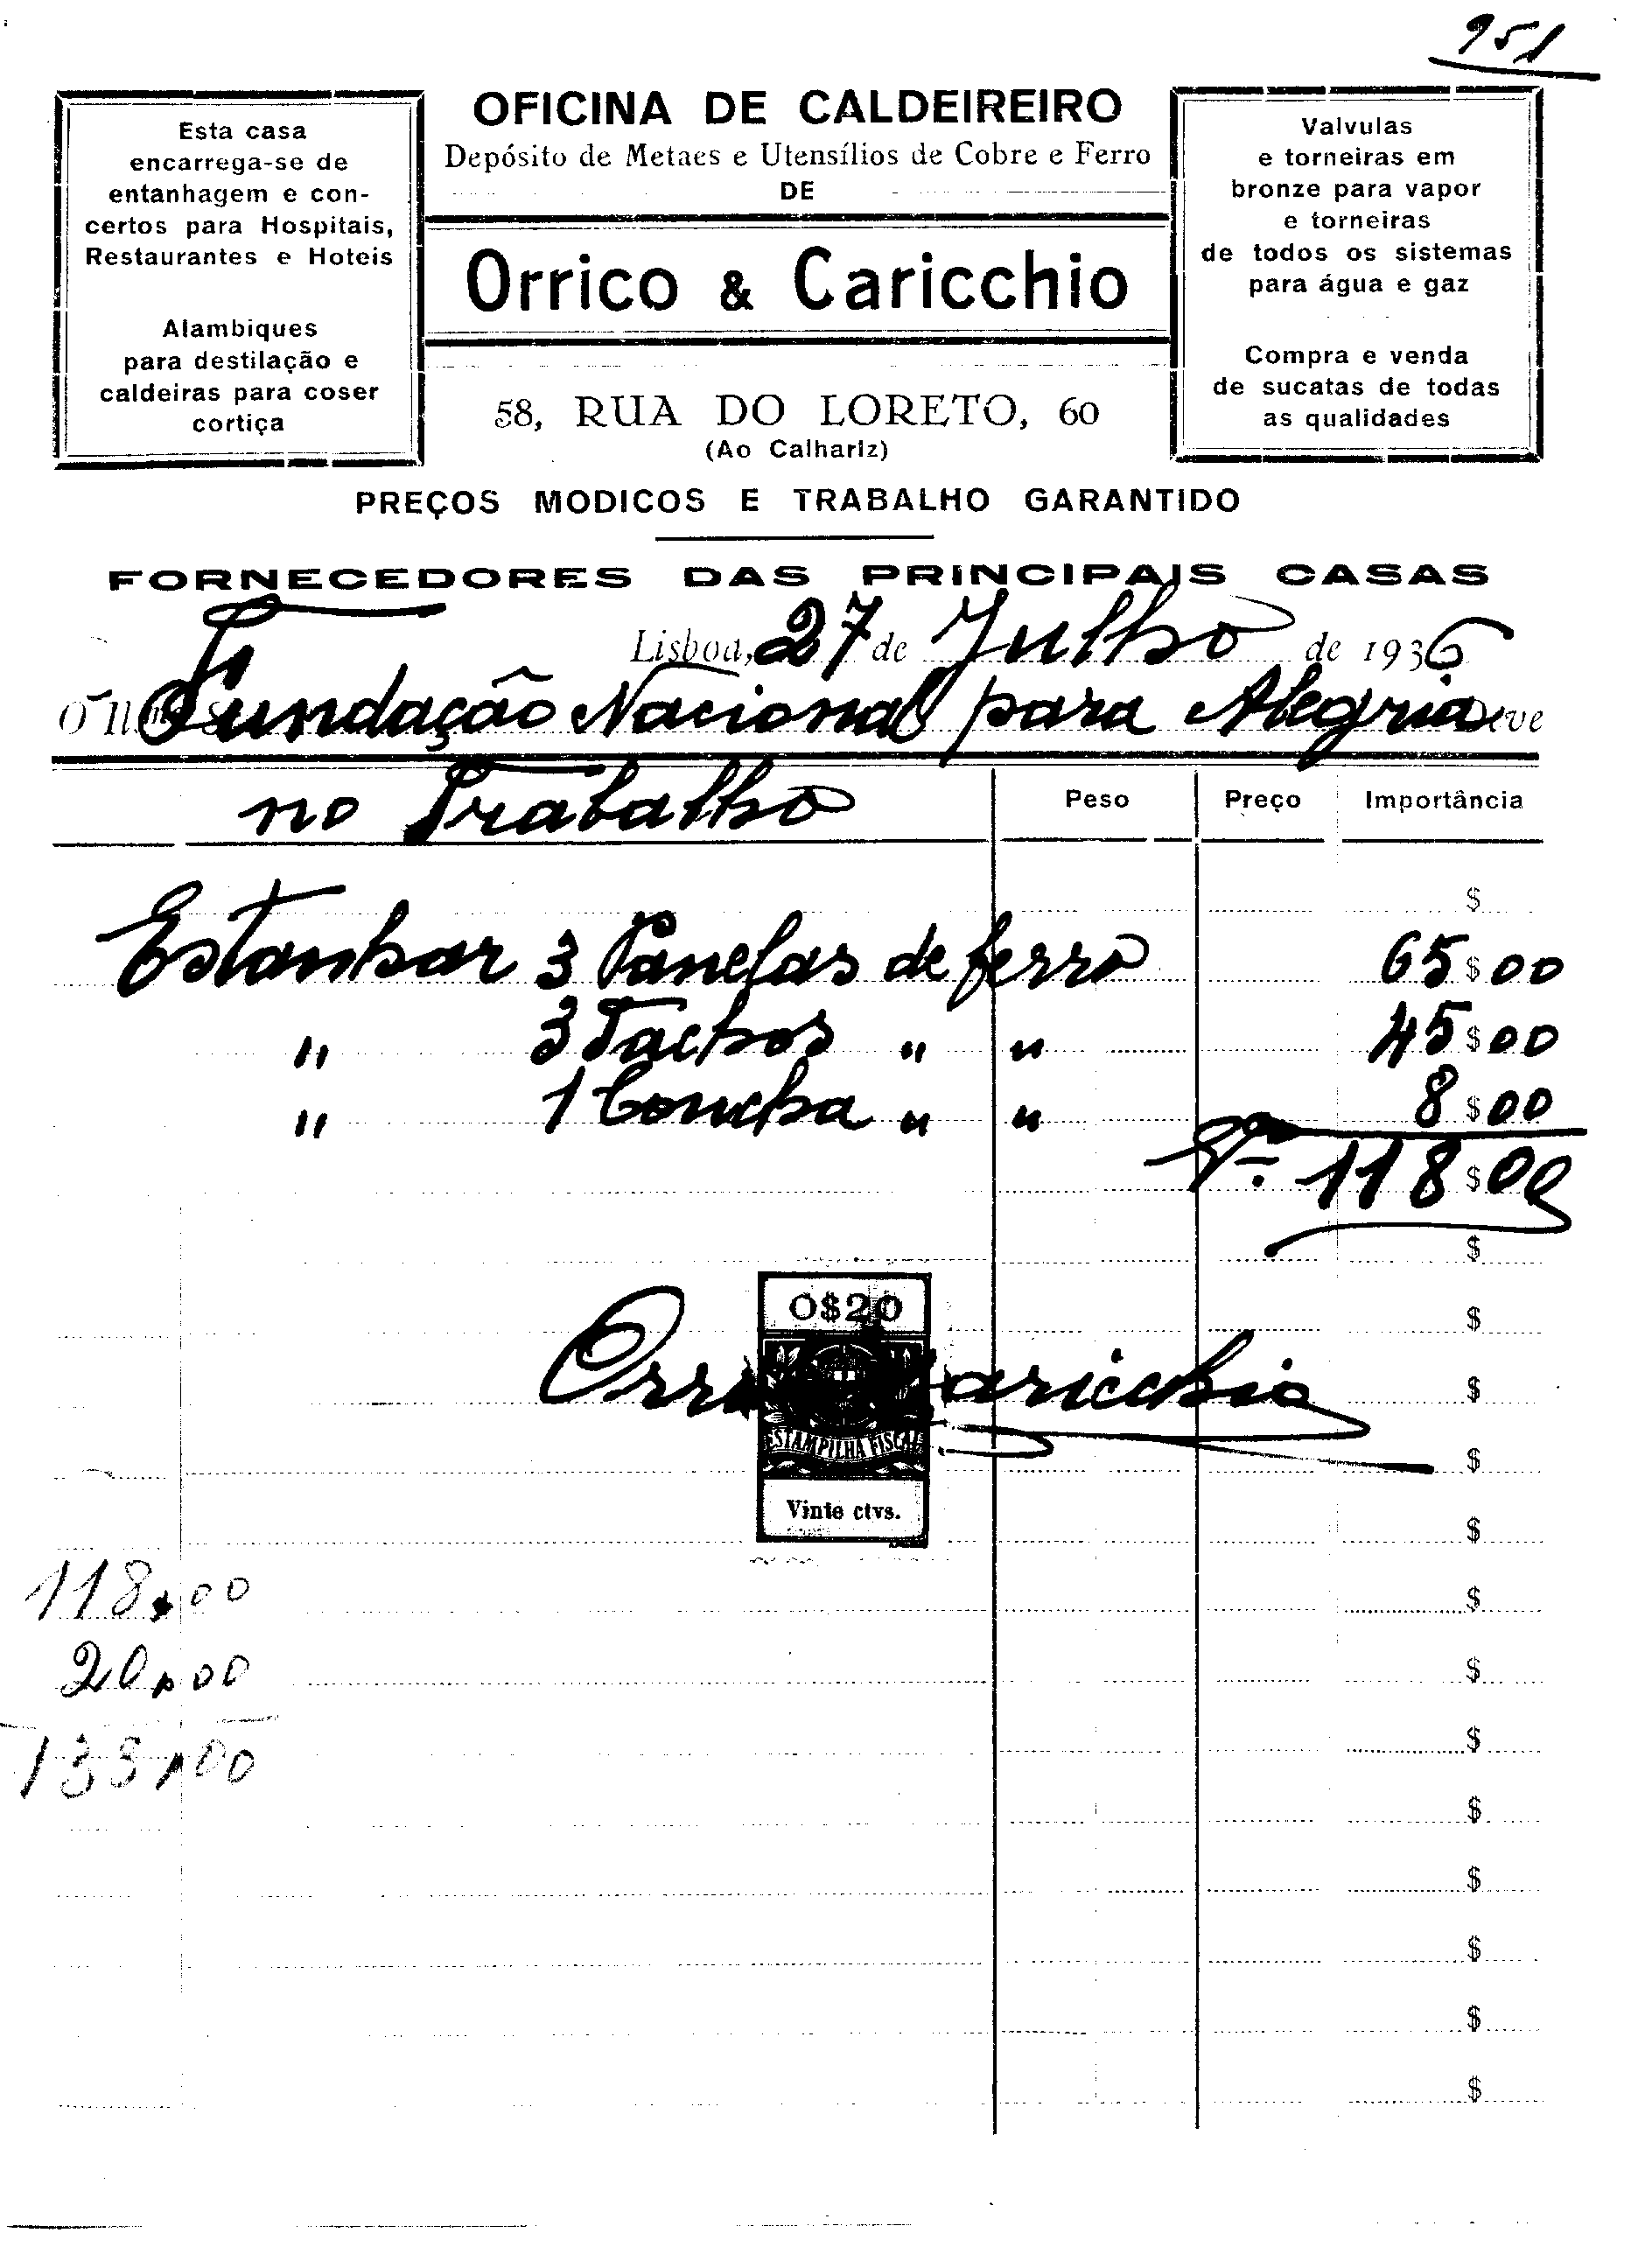 951
Esta casa
encarrega-se de
entanhagem e con-
certos para Hospitais,
Restaurantes e Hoteis
Alambiques
para destilação e
caldeiras para coser
cortiça
OFICINA DE CALDEIREIRO
Depósito de Metaes e Utensílios de Cobre e Ferro
DE
Orrico & Caricchio
58, RUA DO LORETO, 60
(Ao Calhariz)
Valvulas
e torneiras em
bronze para vapor
e torneiras
de todos os sistemas
para água e gaz
Compra e venda
de sucatas de todas
as qualidades
PREÇOS MODICOS E TRABALHO GARANTIDO
FORNECEDORES DAS PRINCIPAIS CASAS
Lisboa, 27 de Julho de 1936
O Fundação Nacional para Alegria Deve
no Trabalho Peso Preço Importância
$
Estanhar 3 Panelas de ferro 65$00
" 3 Tachos " " 45$00
" 1 Concha " " 8$00
118$00
$
O$20
$
Caricchio $
ESTAMPILHA FISCAL
$
Vinte ctvs.
$
118,00 $
20,00 $
138,00 $
$
$
$
$
$